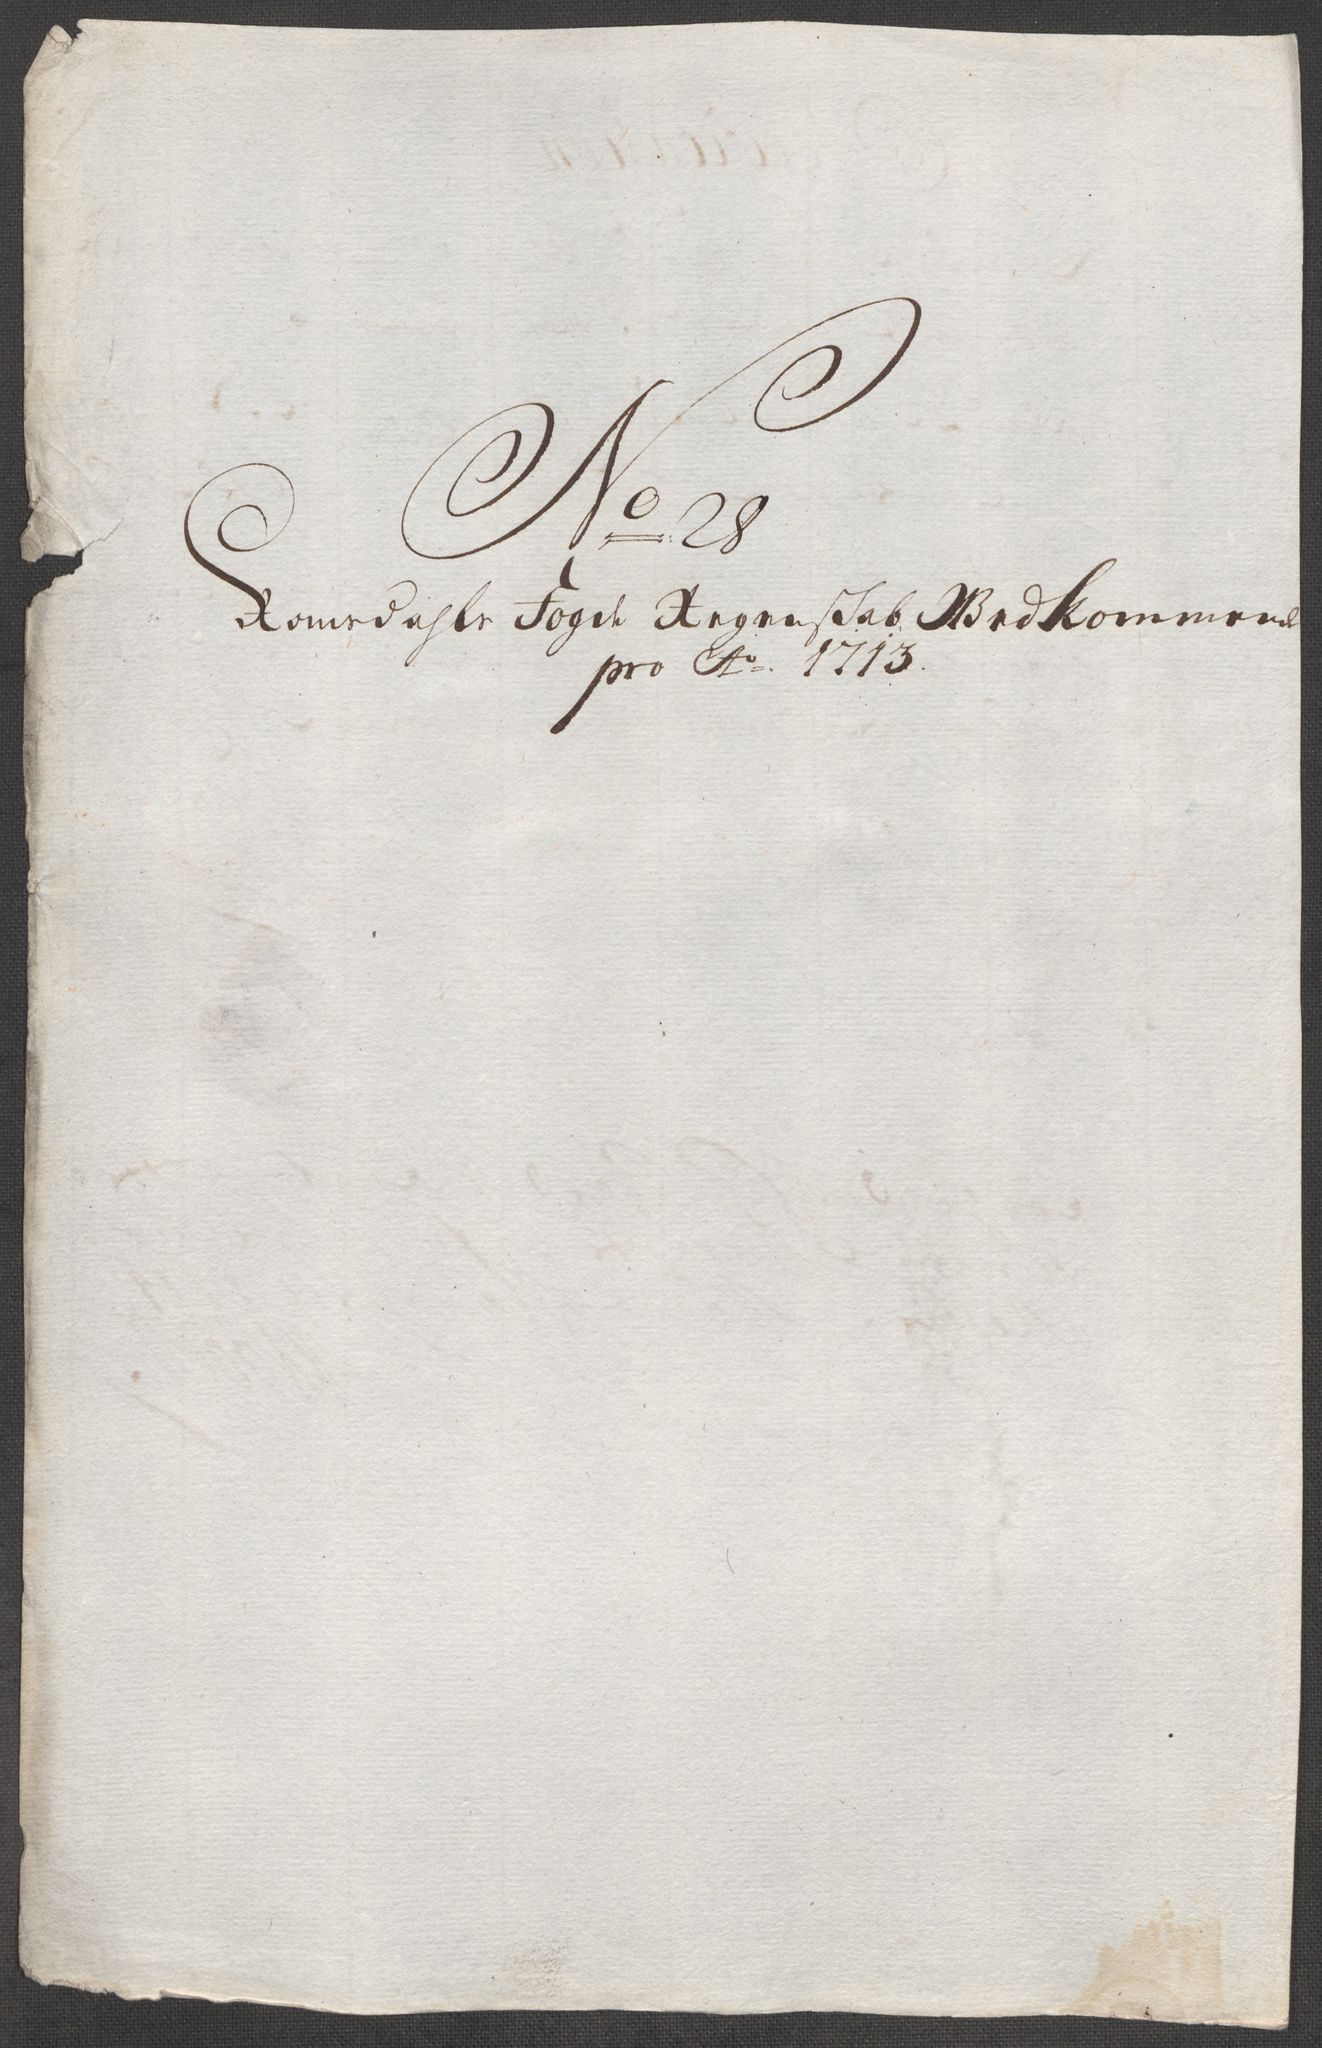 No 28
Romsdahls Fogd: Regenskab Vedkommend
pro Ao. 1713.